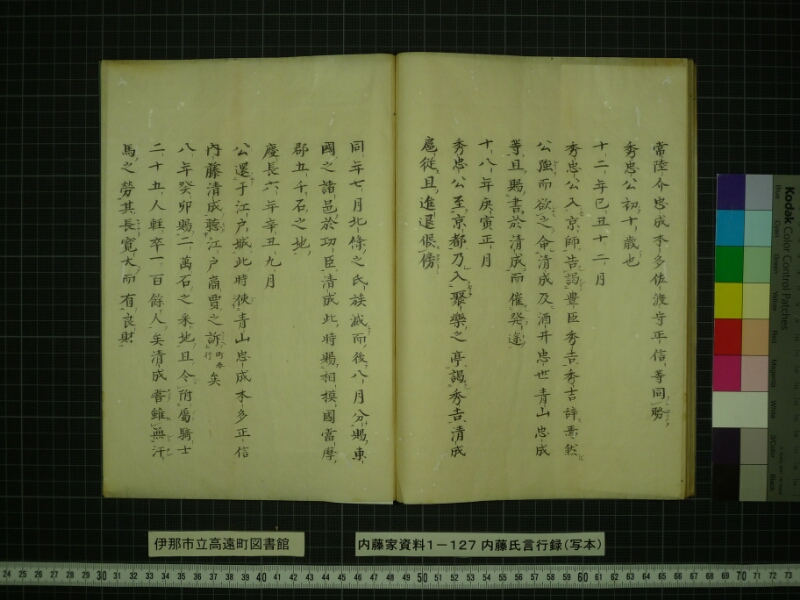 常陸介忠成本多佐渡守正信等同勝
秀忠公初十歳也
十二年己丑十二月
秀忠公入京師告謁豊臣秀吉秀吉辞焉然
公強而欲之命清成及酒井忠世青山忠成
等且賜書於清成而催発途
十八年庚寅正月
秀忠公至京都乃入聚樂之亭謁秀吉清成
扈従且進退偎傍
同年七月北條之氏族滅而後八月分賜東
國之諸邑於功臣清成此時賜相模國當摩
郡五千石之地
慶長六年辛丑九月
公還于江戸城此時使青山忠成本多正信
内藤清成聴江戸商賈之訴 町奉行 矣
八年癸卯賜二萬石之釆地且令附屬騎士
二十五人軽卒一百餘人矣清成嘗雖無汗
馬之勞其長寛大而有良財
伊那市立高遠町図書館
内藤家資料1-127 内藤氏言行録(写本)
Kodak Color Control Patches
Blue Cyan Green Yellow Red Magenta White 3/Color Black
24 25 26 27 28 29 30 31 32 33 34 35 36 37 38 39 40 41 42 43 44 45 46 47 48 49 50 51 52 53 54 55 56 57 58 59 60 61 62 63 64 65 66 67 68 69 70 71 72 73